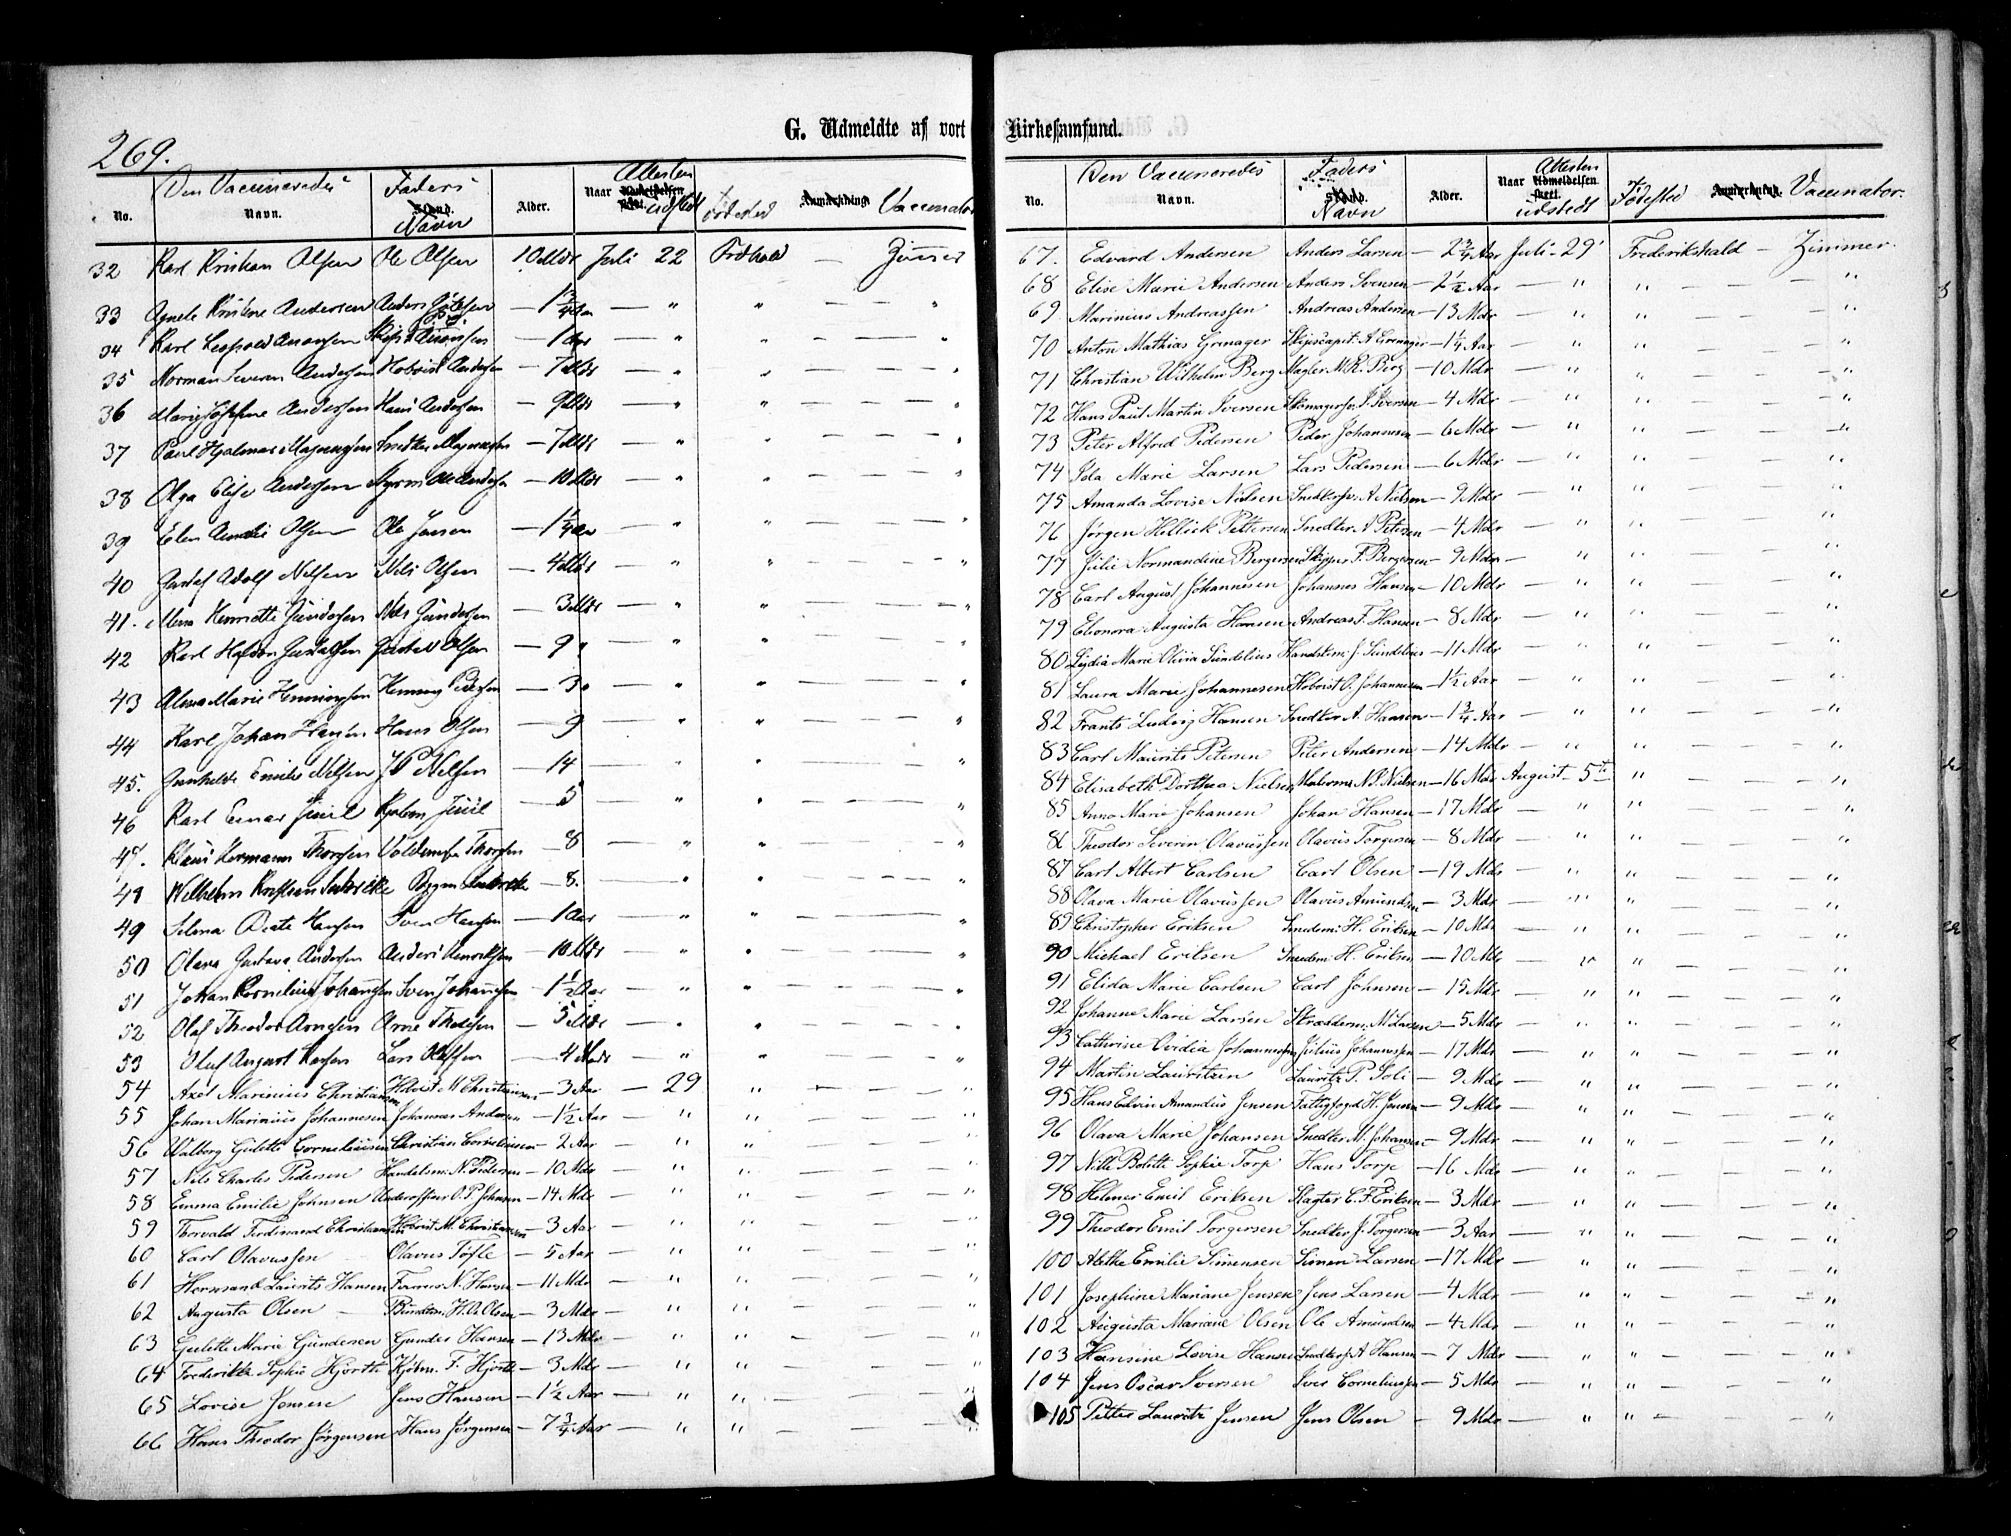 269.
G. Udmeldte af vort Kirkesamfund.
No. Den Vaccineredes Navn. Faders Stand. Navn Alder. Naar Attesten Udmeldelsen skeet. udstedt Fødested Anmærkning Vaccinator
32 Karl Kristian Olsen Ole Olsen 10 Mdr Juli 22 Frdhald — Zimmer
33 Agnete Kristine Andersen Anders — 1 3/4 Aar — " "
34 Karl Leopold — 1 Aar — " "
35 Norman Severin Andersen Hoboist Andersen — 7 Mdr — " "
36 Marie Josephine Andersen Hans Andersen — 9 Mdr — " "
37 Paul Hjalmar Magnussen Snedker Magnussen — 7 Mdr — " "
38 Olga Elise Andersen Ole Andersen — 10 Mdr — " "
39 Elen Amalie Olsen Ole Jensen — 1 1/4 Aar — " "
40 Gustaf Adolf Nilsen Nils Olsen — 4 Mdr — " "
41. Mina Henriette Gundersen Nils Gundersen — 3 Mdr — " "
42 Karl Halvor Gustafsen Gustav Olsen — 9 " — " "
43 Alma Marie Henningsen Henning Pedersen — 3 " — " "
44 Karl Johan Hansen Hans Olsen — 9 — " "
45. Gunhilde Emilie Nilsen Nilsen — 14 — " "
46 Karl Einar Juul Juul — 5 — " "
47. Klaus Hermann Thorsen Voldemar Thorsen — 8 — " "
48 Wilhelm Kristian — 8. — " "
49 Selma Beate Hansen Sven Hansen — 1 Aar — " "
50 Olava Gustava Andersen Anders Henriksen — 10 Mdr — " "
51 Johan Kornelius Johansen Sven Johansen — 1 1/2 Aar — " "
52 Olaf Theodor Arnesen Arne Thodesen — 5 Mdr — " "
53 Oluf August Larsen Lars Olsen — 4 Mdr — " "
54 Axel Marinius Christiansen Hoboist M Christiansen — 3 Aar — 29 "
55 Johan Marinius Johannesen Johannes Andersen — 1 1/2 Aar — " "
56 Walborg Gulette Corneliusen Christian Corneliusen — 2 Aar — " "
57 Nils Charles Pedersen Handelsm. N. Pedersen — 10 Mdr — " "
58 Emma Emilie Johnsen Underofficer O. P. Johnsen — 14 Mdr — " "
59 Thorvald Ferdinand Christiansen Hoboist M. Christiansen — 3 Aar — " "
60 Carl Olavussen Olavus Tofle — 5 Aar — " "
61 Hermand Laurits Hansen N. Hansen — 11 Mdr — " "
62 Augusta Olsen — H. A. Olsen — 3 Mdr — " "
63 Gulette Marie Gundersen Gunder Hansen — 13 Mdr — " "
64 Frederikke Sophie Hjorth Kjøbm. F. Hjorth — 3 Mdr — " "
65 Lovise Jensen Jens Hansen — 1 1/2 Aar — " "
66 Hans Theodor Jørgensen Hans Jørgensen — 7 3/4 Aar — " "
No. Den Vaccineredes Navn. Faders Stand. Navn Alder. Naar Attesten Udmeldelsen skeet. udstedt Fødested Anmærkning. Vaccinator.
67. Edvard Andersen Anders Larsen — 2 3/4 Aar Juli - 29 Frederikshald — Zimmer
68 Elise Marie Andersen Anders Svensen — 2 1/2 Aar — " "
69 Marinius Andreassen Andreas Andersen — 13 Mdr — " "
70 Anton Mathias Grenager Skipscapit. A Grenager — 1 1/4 Aar — " "
71 Christian Wilhelm Berg Mægler M. R. Berg — 10 Mdr — " "
72 Hans Paul Martin Iversen Skomagersv. P. Iversen — 4 Mdr — " "
73 Peter Alfred Pedersen Peder Johannesen — 6 Mdr — " "
74 Ida Marie Larsen Lars Pedersen — 6 Mdr — " "
75 Amanda Lovise Nielsen Snedkersv. A Nielsen — 9 Mdr — " "
76 Jørgen Hellick Pettersen Snedker A Petersen — 4 Mdr — " "
77 Julie Normandine Bergersen Skipper F. Bergersen — 9 Mdr — " "
78 Carl August Johannesen Johannes Hansen — 10 Mdr — " "
79 Eleonora Augusta Hansen Andreas F. Hansen — 8 Mdr — " "
80 Lydia Marie Olivia Sundelius Handskm. J. Sundelius — 11 Mdr — " "
81 Laura Marie Johannesen Hoboist O. Johannesen — 1 1/2 Aar — " "
82 Frants Ludvig Hansen Snedker A. Hansen — 1 3/4 Aar — " "
83 Carl Maurits Petersen Peter Andersen — 14 Mdr — " "
84 Elisabeth Dorthea Nielsen N. P. Nielsen — 16 Mdr August - 5te "
85 Anna Marie Johansen Johan Hansen — 17 Mdr — " "
86 Theodor Severin Olavussen Olavus Torgersen — 8 Mdr — " "
87 Carl Albert Carlsen Carl Olsen — 19 Mdr — " "
88 Olava Marie Olavussen Olavus Amundsen — 3 Mdr — " "
89 Christopher Eriksen Smedem. H. Eriksen — 10 Mdr — " "
90 Michael Eriksen Smedem. H. Eriksen — 10 Mdr — " "
91 Elida Marie Carlsen Carl Johnsen — 15 Mdr — " "
92 Johanne Marie Larsen Skrædderm. M. Larsen — 5 Mdr — " "
93 Cathrine Ovidia Johannessen Julius Johannessen — 17 Mdr — " "
94 Martin Lauritzen Lauritz P. Soli — 9 Mdr — " "
95 Hans Edvin Amandus Jensen Fattigfogd H. Jensen — 9 Mdr — " "
96 Olava Marie Johansen Snedker M. Johansen — 9 Mdr — " "
97 Nille Bolette Sophie Torp Hans Torp — 16 Mdr — " "
98 Helmer Emil Eriksen Slagter C. F. Eriksen — 3 Mdr — " "
99 Theodor Emil Torgersen Snedker J. Torgersen — 3 Aar — " "
100 Alethe Emilie Simensen Simen Larsen — 17 Mdr — " "
101 Josephine Mariane Jensen Jens Larsen — 4 Mdr — " "
102 Augusta Mariane Olsen Ole Amundsen — 4 Mdr — " "
103 Hansine Lovise Hansen Snedkers. A Hansen — 7 Mdr — " "
104 Jens Oscar Iversen Iver Corneliussen — 5 Mdr — " "
105 Petter Lauritz Jensen Jens Olsen — 9 Mdr — " "